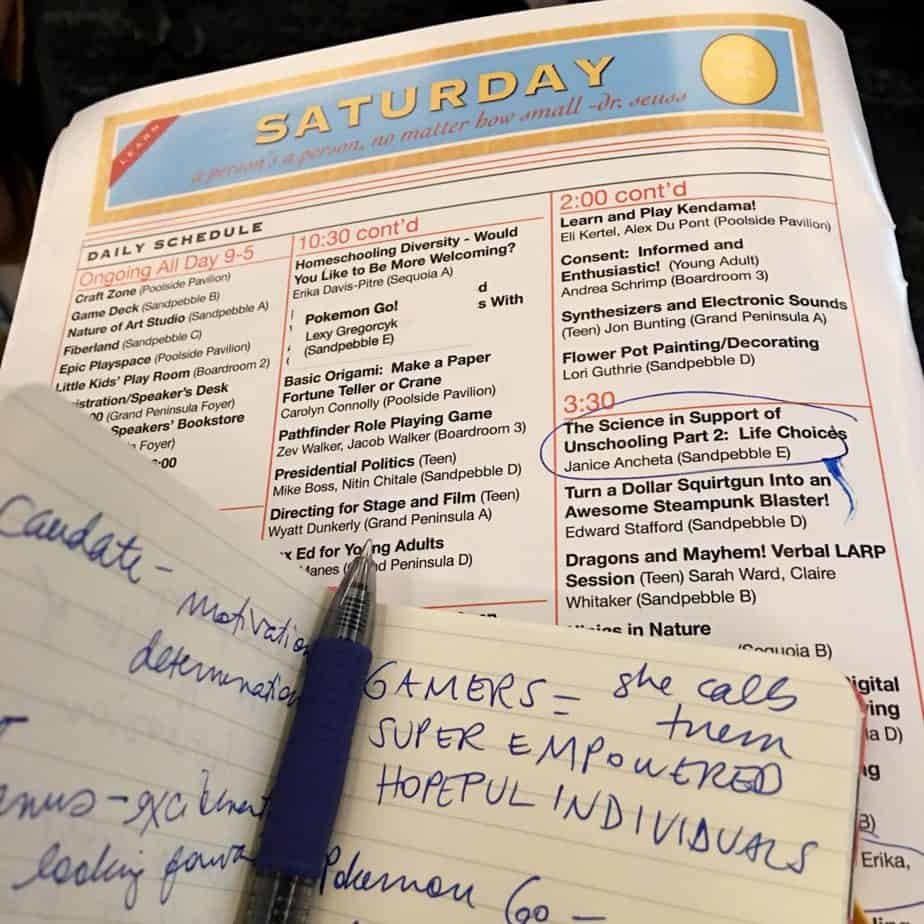 LEARN
SATURDAY
a person's a person, no matter how small -dr. seuss
DAILY SCHEDULE
Ongoing All Day 9-5
Craft Zone (Poolside Pavilion)
Game Deck (Sandpebble B)
Nature of Art Studio (Sandpebble A)
Fiberland (Sandpebble C)
Epic Playspace (Poolside Pavilion)
Little Kids' Play Room (Boardroom 2)
istration/Speaker's Desk
00 (Grand Peninsula Foyer)
Speakers' Bookstore
Foyer)
:00
10:30 cont'd
Homeschooling Diversity - Would
You Like to Be More Welcoming?
Erika Davis-Pitre (Sequoia A)
d
s With
Pokemon Go!
Lexy Gregorcyk
(Sandpebble E)
Basic Origami: Make a Paper
Fortune Teller or Crane
Carolyn Connolly (Poolside Pavilion)
Pathfinder Role Playing Game
Zev Walker, Jacob Walker (Boardroom 3)
Presidential Politics (Teen)
Mike Boss, Nitin Chitale (Sandpebble D)
Directing for Stage and Film (Teen)
Wyatt Dunkerly (Grand Peninsula A)
x Ed for Young Adults
Manes (Grand Peninsula D)
2:00 cont'd
Learn and Play Kendama!
Eli Kertel, Alex Du Pont (Poolside Pavilion)
Consent: Informed and
Enthusiastic! (Young Adult)
Andrea Schrimp (Boardroom 3)
Synthesizers and Electronic Sounds
(Teen) Jon Bunting (Grand Peninsula A)
Flower Pot Painting/Decorating
Lori Guthrie (Sandpebble D)
3:30
The Science in Support of
Unschooling Part 2: Life Choices
Janice Ancheta (Sandpebble E)
Turn a Dollar Squirtgun Into an
Awesome Steampunk Blaster!
Edward Stafford (Sandpebble D)
Dragons and Mayhem! Verbal LARP
Session (Teen) Sarah Ward, Claire
Whitaker (Sandpebble B)
in Nature
(Sequoia B)
igital
ing
a D)
ng
B)
Erika,
Caudate -
motivation
determination
enus - excitement
looking forwa
GAMERS = she calls
them
SUPER EMPOWERED
HOPEFUL INDIVIDUALS
Pokemon Go -